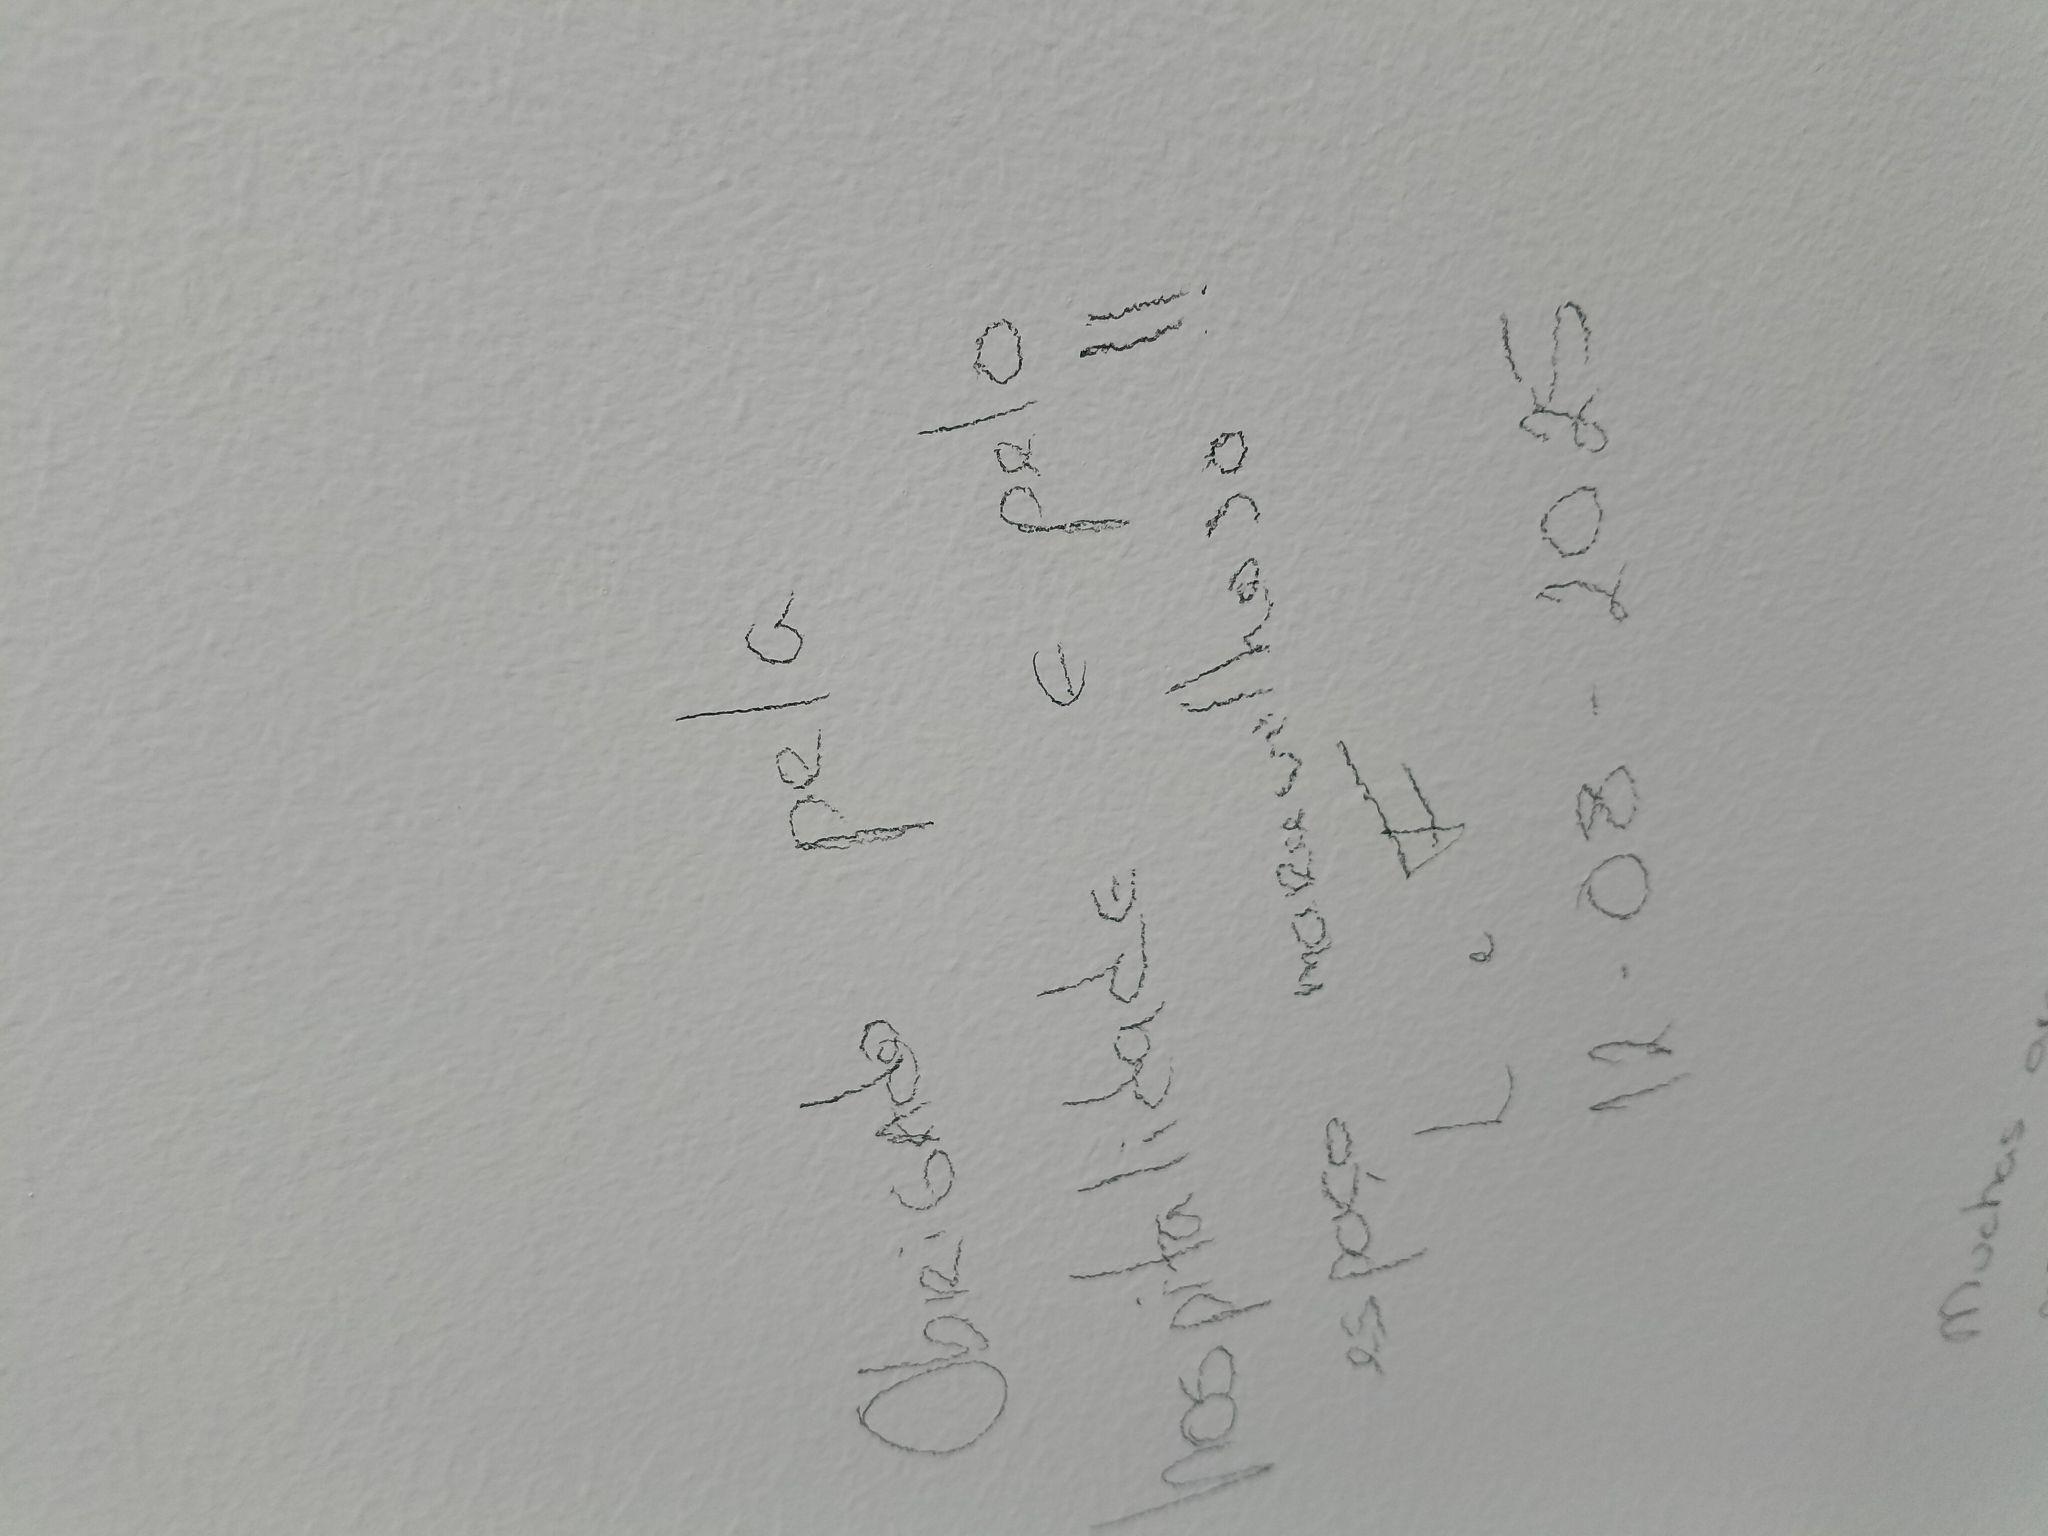 Obrigado pela
hospitalidade e pelo
espaço maravilhoso!!
12.08-20
Muchas